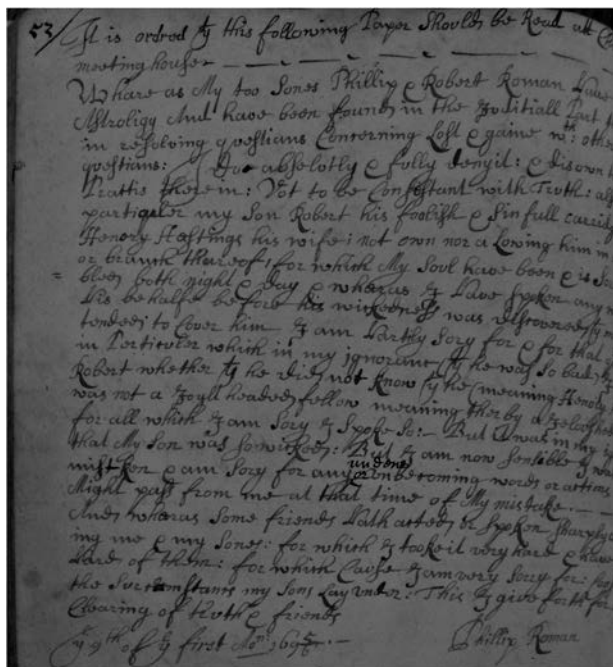 53/ It is ordred yt this following Paper Should be Read att
meeting house
Whare as My too Sones Phillip & Robert Roman have
Astroligy And have been found in the Juditiall Part
in resolving questians Concerning Lost & gaine wth othe
questians: I Doe absolotly & fully denyit: & disown
Prattis therein: Not to be Consistant with Truth: al
particuler my Son Robert his foolish & Sinfull carri
Henory Hastings his wife i not own nor alowing him in
or branch thareof, for which My Soul have been & is So
bled both night & day & wharas I have Spoken any
his behalfe before his wickedness was discovered
tended to Cover him I am harthy Sory for & for that
in Perticuler which in my ignorance yt he was So bad
Robert whether yt he did not know yt he meaning Henory
was not a Joyll headed fellow meaning therby a Jealous he
for all which I am Sory I Spoke So:- But it was in my
that My Son was So wicked: But I am now Sensible I w
mistken & am Sory for any undeue or onbecoming words or actions
Might pass from me at that time of My mistake.
And wharas Some friends hath acted or Spoken Sharply
ing me & my Sones: for which I tooke it very hard & have
hard of them: for which Cause I am very Sorry for:
the Surcumstants my Sons Lay under: This I give forth for
Clearing of truth & friends
ye 9th of ye first Mo: 1695/6
Phillip Roman